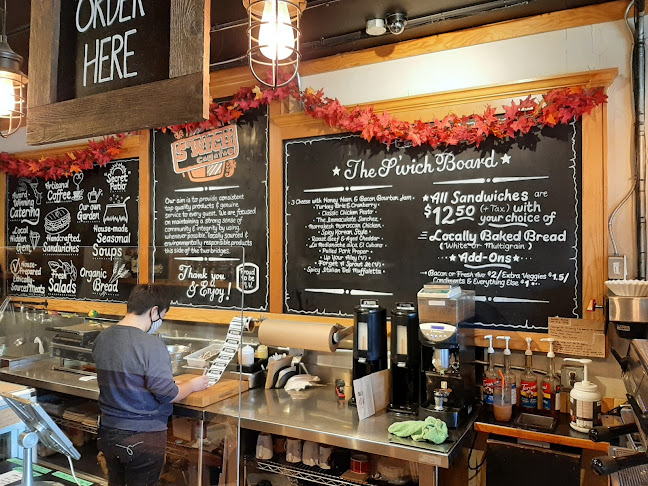 ORDER
HERE
Award
Winning
Catering
Artisanal
Coffee
Secret
Patio
Local
Hidden
Gem
Handcrafted
Sandwiches
our own
Garden
House-made
Seasonal
Soups
House-Prepared
Ethically
Sources Meats
Salads
Organic
Bread
S'WICH
Café & Bar
Our aim is to provide consistent
top quality products & genuine
service to every guest. We are focused
on maintaining a strong sense of
community & integrity by using,
whenever possible, locally sourced &
environmentally responsible products
this side of the two bridges.
Thank you
& Enjoy!
Proud
to be
The S'wich Board
3 Cheese with Honey Ham & Bacon Bourbon Jam
Turkey Brie & Cranberry
Classic Chicken Pesto
The Immaculate Sanchez
Marrakesh Moroccan Chicken
Spicy Korean Style
Roast Beef & Aged Cheddar
La Medianoche aka El Cubano
Pulled Pork Pepper
Up Your Alley (V)
Forget A Sprout It (V)
Spicy Italian Deli Muffaletta
All Sandwiches are
$12.50 (+ Tax) with
your choice of
Locally Baked Bread
(White or Multigrain)
Add-Ons
Bacon or Fresh Avo $2/ Extra Veggies $1.5/
Condiments & Everything Else $1